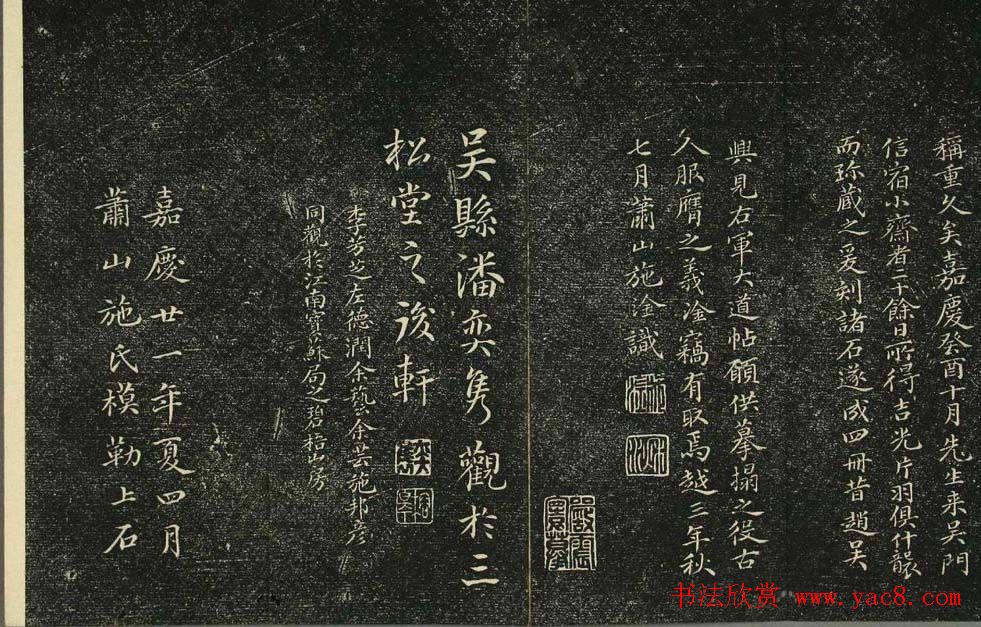 稱重久矣嘉慶癸酉十月先生来吴門
信宿小齋者二十餘日所得吉光片羽俱什襲
而珎蔵之爰刻諸石遂成四冊昔趙吴
興見右軍大道帖願供摹搨之役古
人服膺之義淦竊有取焉越三年秋
七月蕭山施淦識
吴縣潘奕雋觀於三
松堂之後軒
李芳芝左德潤余藝余芸施邦彦
同觀於江南寳蘇局之碧梧山房
嘉慶廿一年夏四月
蕭山施氏模勒上石
书法欣赏 www.yac8.com